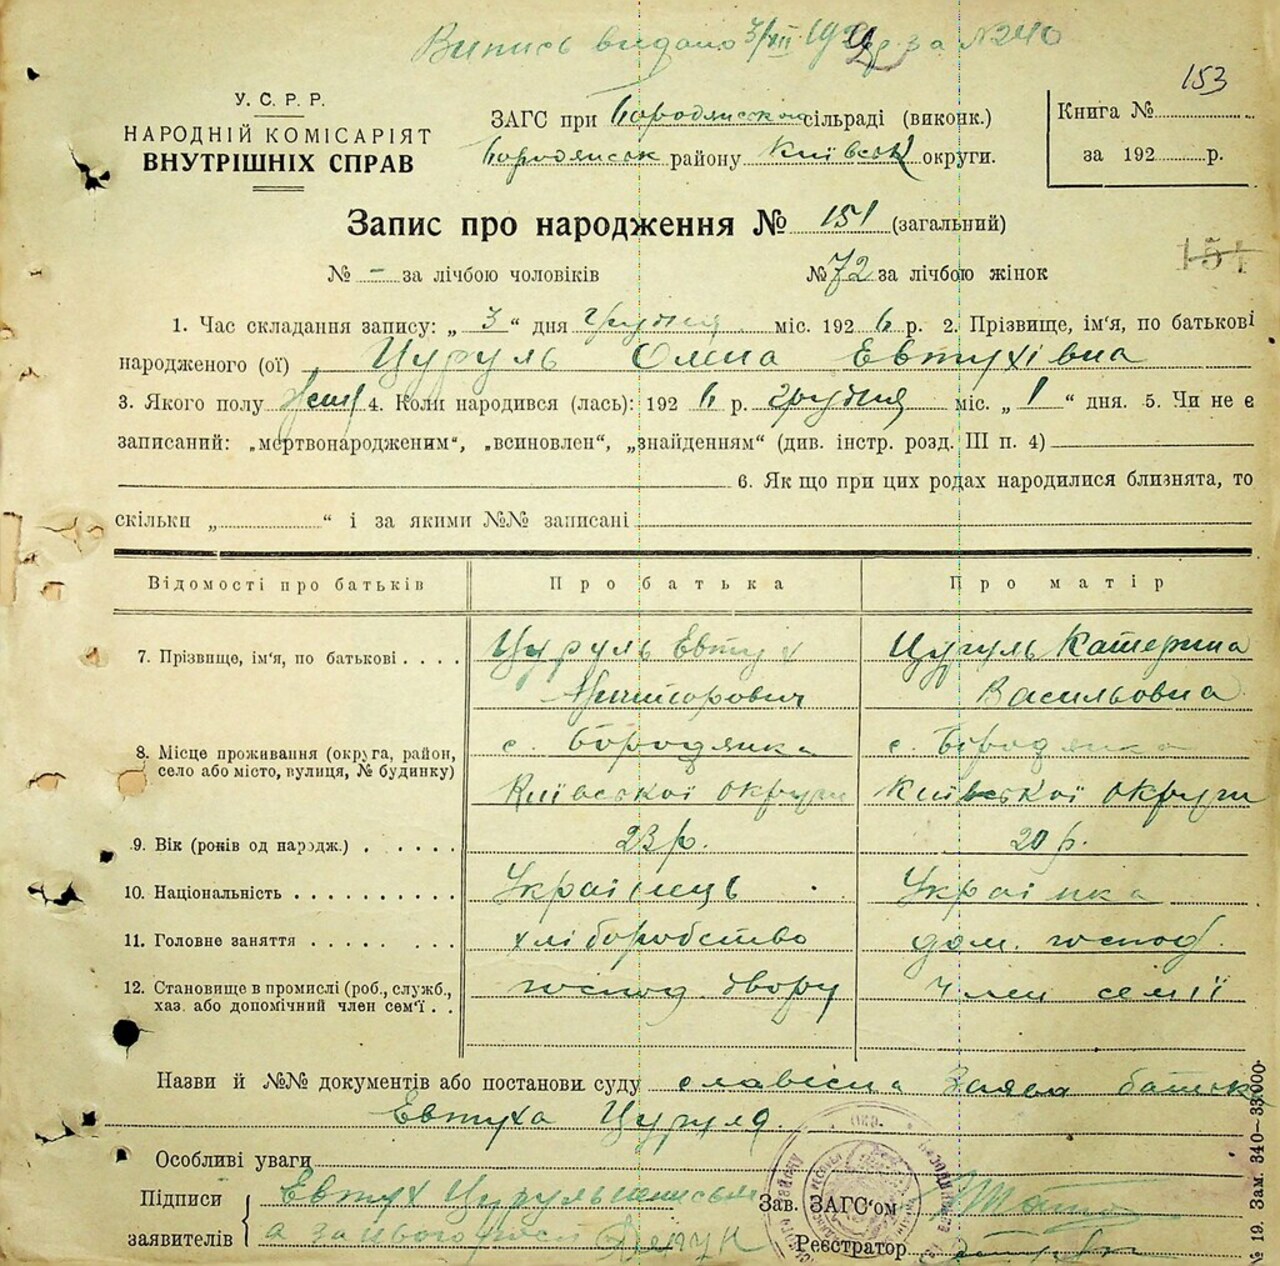 Випись видано 3/XII 192 р за №240
153
У. С. Р. Р.
НАРОДНІЙ КОМІСАРІЯТ
ВНУТРІШНІХ СПРАВ
ЗАГС при Бородянськ сільраді (виконк.)
Бородянськ району Київськ округи.
Книга №
за 192 р.
Запис про народження № 151 (загальний)
151
№ - за лічбою чоловіків № 72 за лічбою жінок
1. Час складання запису: „ 3 “ дня грудня міс. 192 6 р. 2. Прізвище, ім'я, по батькові
народженого (ої) Цуруль Олена Евтухівна
3. Якого полу жін 4. Коли народився (лась): 192 6 р. грудня міс. „ 1 “ дня. 5. Чи не є
записаний: „мертвонародженим“, „всиновлен“, „знайденням“ (див. інстр. розд. III п. 4)
6. Як що при цих родах народилися близнята, то
скільки „ “ і за якими №№ записані
Відомості про батьків Про батька Про матір
7. Прізвище, ім'я, по батькові . . . . Цуруль Евтух Цуруль Катерина
Васильовна
8. Місце проживання (округа, район, село або місто, вулиця, № будинку) с. Бородянка с. Бородянка
Київської округи Київської округи
9. Вік (років од народж.) . . . . . . 23 р. 20 р.
10. Національність . . . . . . . . . . Українець Українка
11. Головне заняття . . . . . . . . . хліборобство дом. господ.
12. Становище в промислі (роб., служб., хаз. або допомічний член сем'ї . . господ. двору член семії
Назви й №№ документів або постанови суду словісна Заява батьк
Евтуха Цуруля
Особливі уваги
Підписи Евтух Цуруль Зав. ЗАГС'ом
заявителів а за нього Реєстратор
№ 19. Зам. 340—33.000